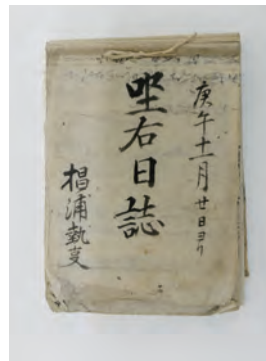 庚午十一月廿日ヨリ
坐右日誌
椙浦執事